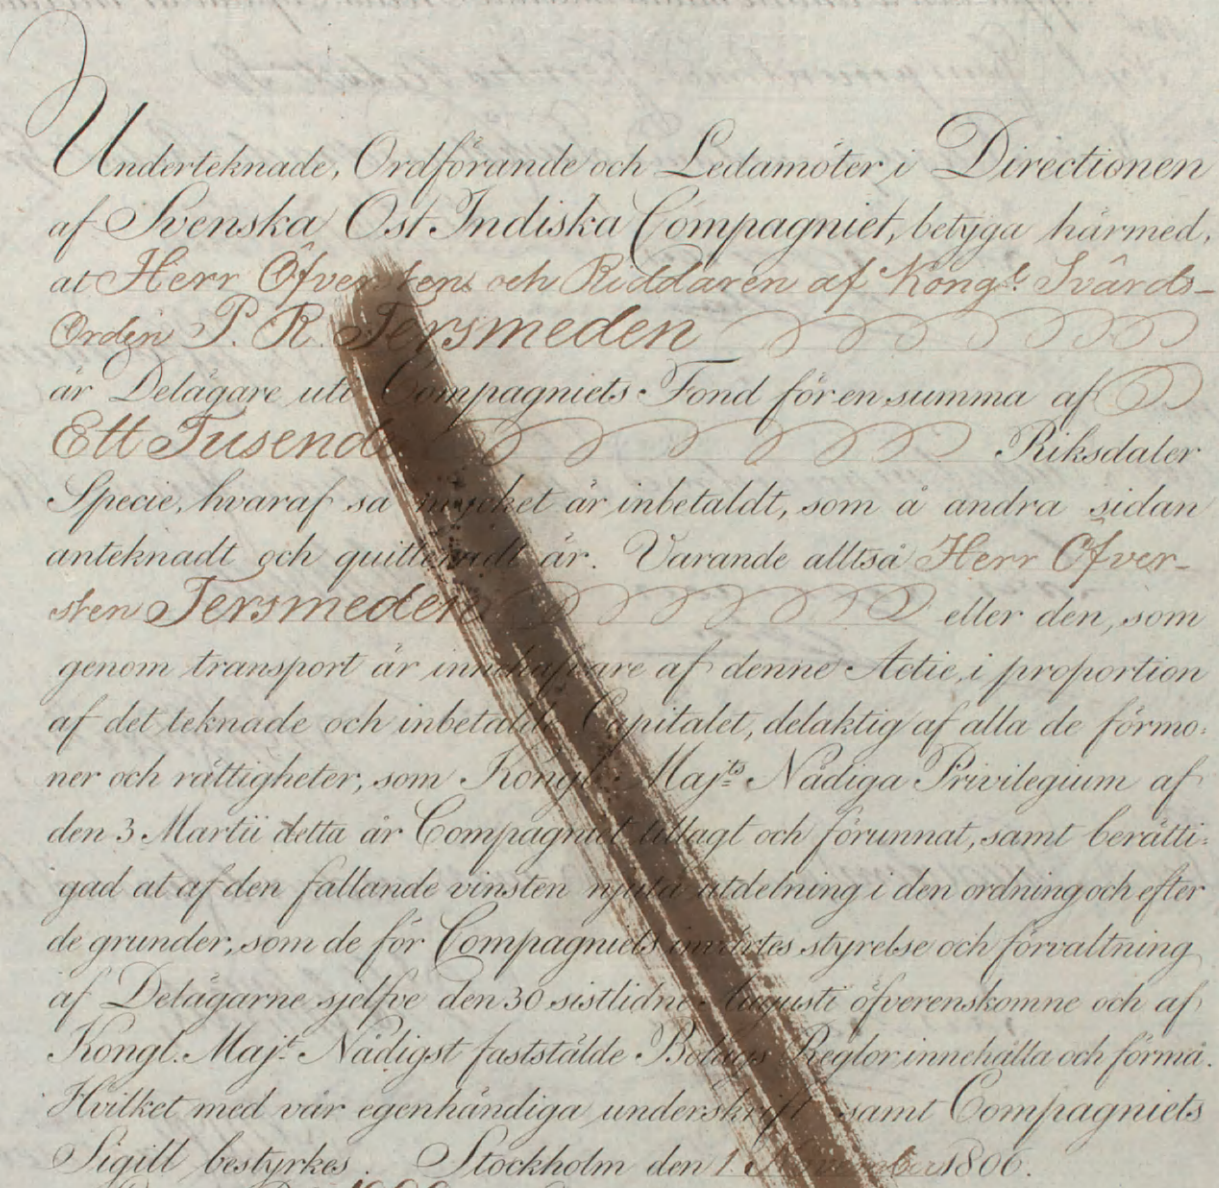 Underteknade, Ordförande och Ledamöter i Directionen
af Svenska Ost Indiska Compagniet, betyga härmed,
at Herr Öfversten och Riddaren af Kongl. Svärds-
Orden P. R. Tersmeden
är Delägare uti Compagniets Fond för en summa af
Ett Tusende Riksdaler
Specie, hvaraf så mycket är inbetaldt, som å andra sidan
anteknadt och quitteradt är. Varande alltså Herr Öfver-
sten Tersmeden eller den, som
genom transport är innehafvare af denne Actie, i proportion
af det teknade och inbetalde Capitalet, delaktig af alla de förmo-
ner och rättigheter, som Kongl. Majts Nådiga Privilegium af
den 3 Martii detta år Compagniet tillagt och förunnat, samt berätti-
gad at af den fallande vinsten njuta utdelning i den ordning och efter
de grunder, som de för Compagniets invärtes styrelse och förvaltning
af Delägarne sjelfve den 30 sistlidne Augusti öfverenskomne och af
Kongl. Majt Nådigst faststälde Bolags Reglor innehålla och förmå.
Hvilket med vår egenhändiga underskrift samt Compagniets
Sigill bestyrkes. Stockholm den 1. November 1806.